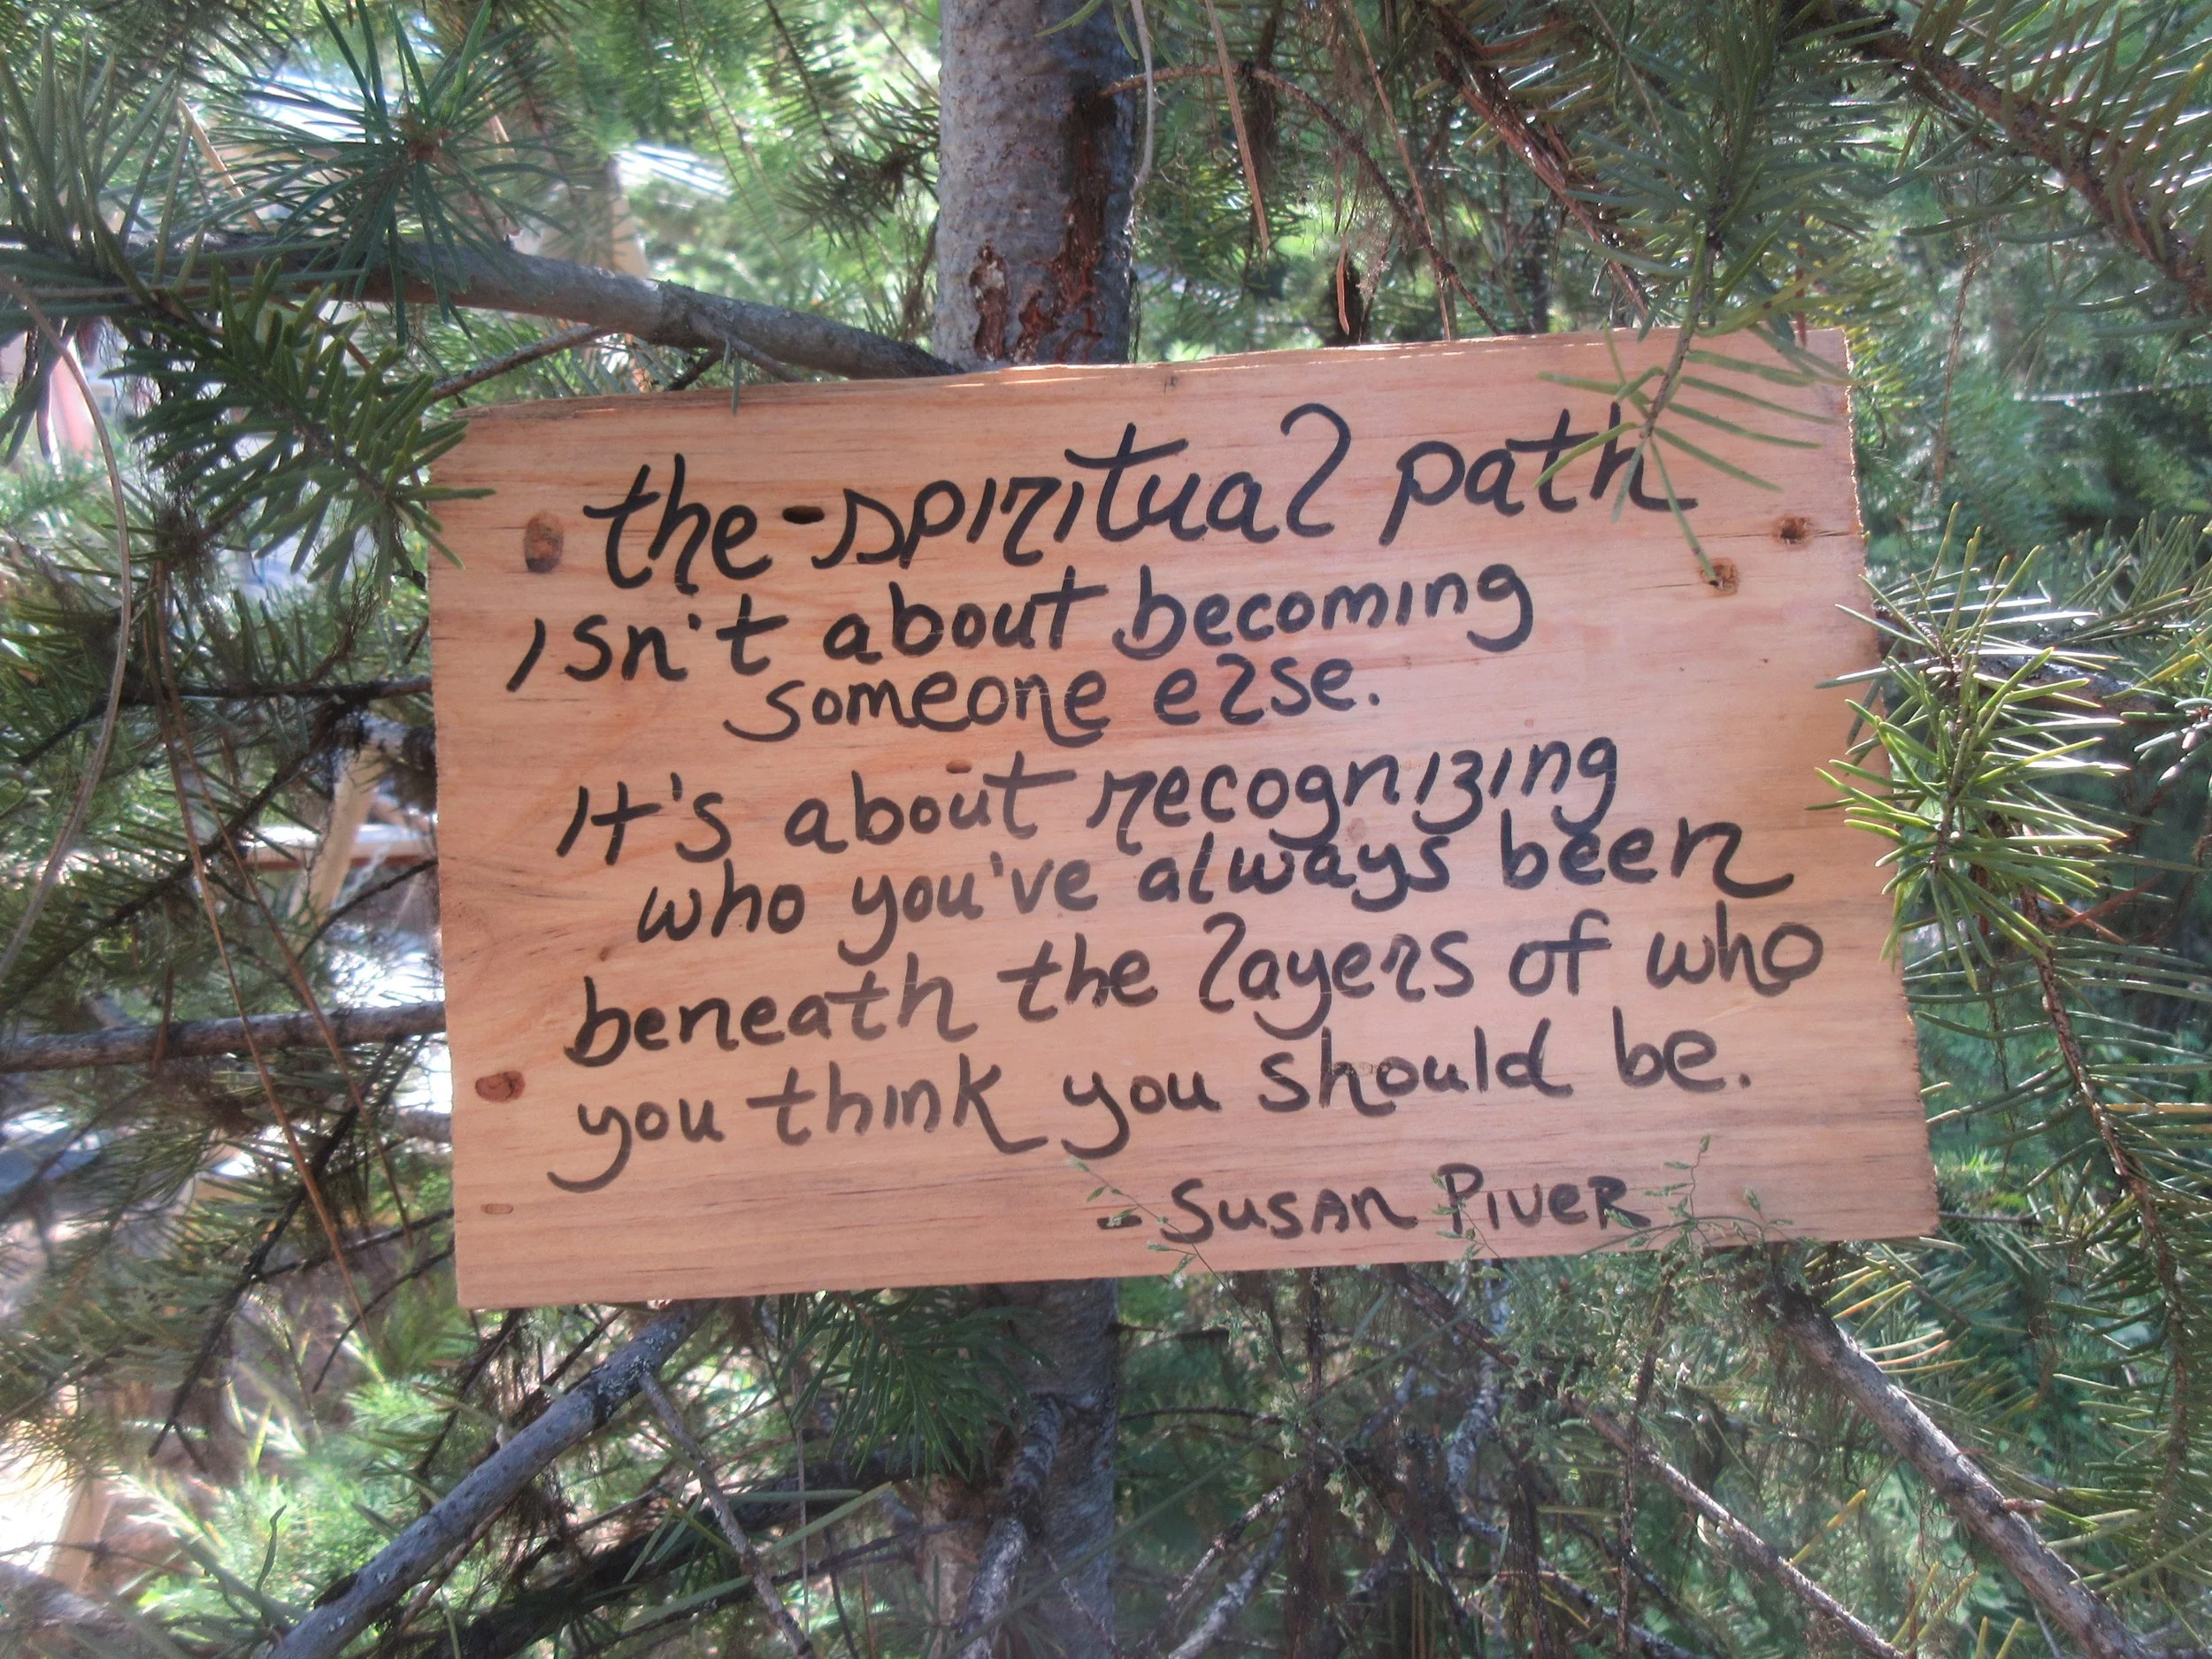 the spiritual path
isn't about becoming
someone else.
It's about recognizing
who you've always been
beneath the layers of who
you think you should be.
- Susan Piver